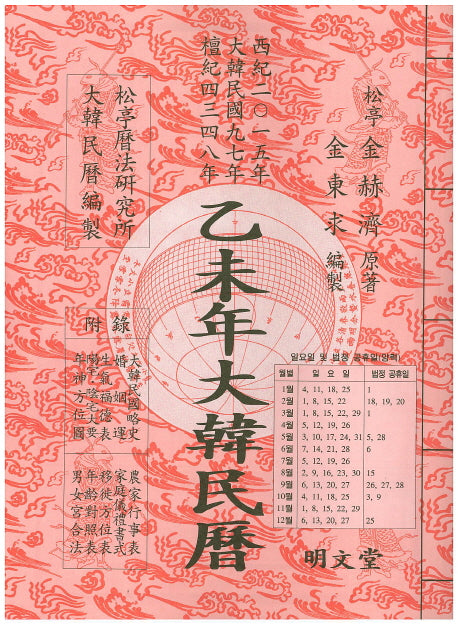 松亭 金赫濟 原著
金東求 編製
西紀二〇一五年
大韓民國九七年
檀紀四三四八年
乙未年大韓民曆
松亭曆法硏究所
大韓民曆編製
附錄
大韓民國略史
婚姻運
生氣福德表
陽宅·陰宅大要
年神方位圖
農家行事表
家庭儀禮書式
移徙方位表
年齡對照表
男女宮合法
일요일 및 법정 공휴일(양력)
월별 일 요 일 법정 공휴일
1월 4, 11, 18, 25 1
2월 1, 8, 15, 22 18, 19, 20
3월 1, 8, 15, 22, 29 1
4월 5, 12, 19, 26
5월 3, 10, 17, 24, 31 5, 28
6월 7, 14, 21, 28 6
7월 5, 12, 19, 26
8월 2, 9, 16, 23, 30 15
9월 6, 13, 20, 27 26, 27, 28
10월 4, 11, 18, 25 3, 9
11월 1, 8, 15, 22, 29
12월 6, 13, 20, 27 25
明文堂